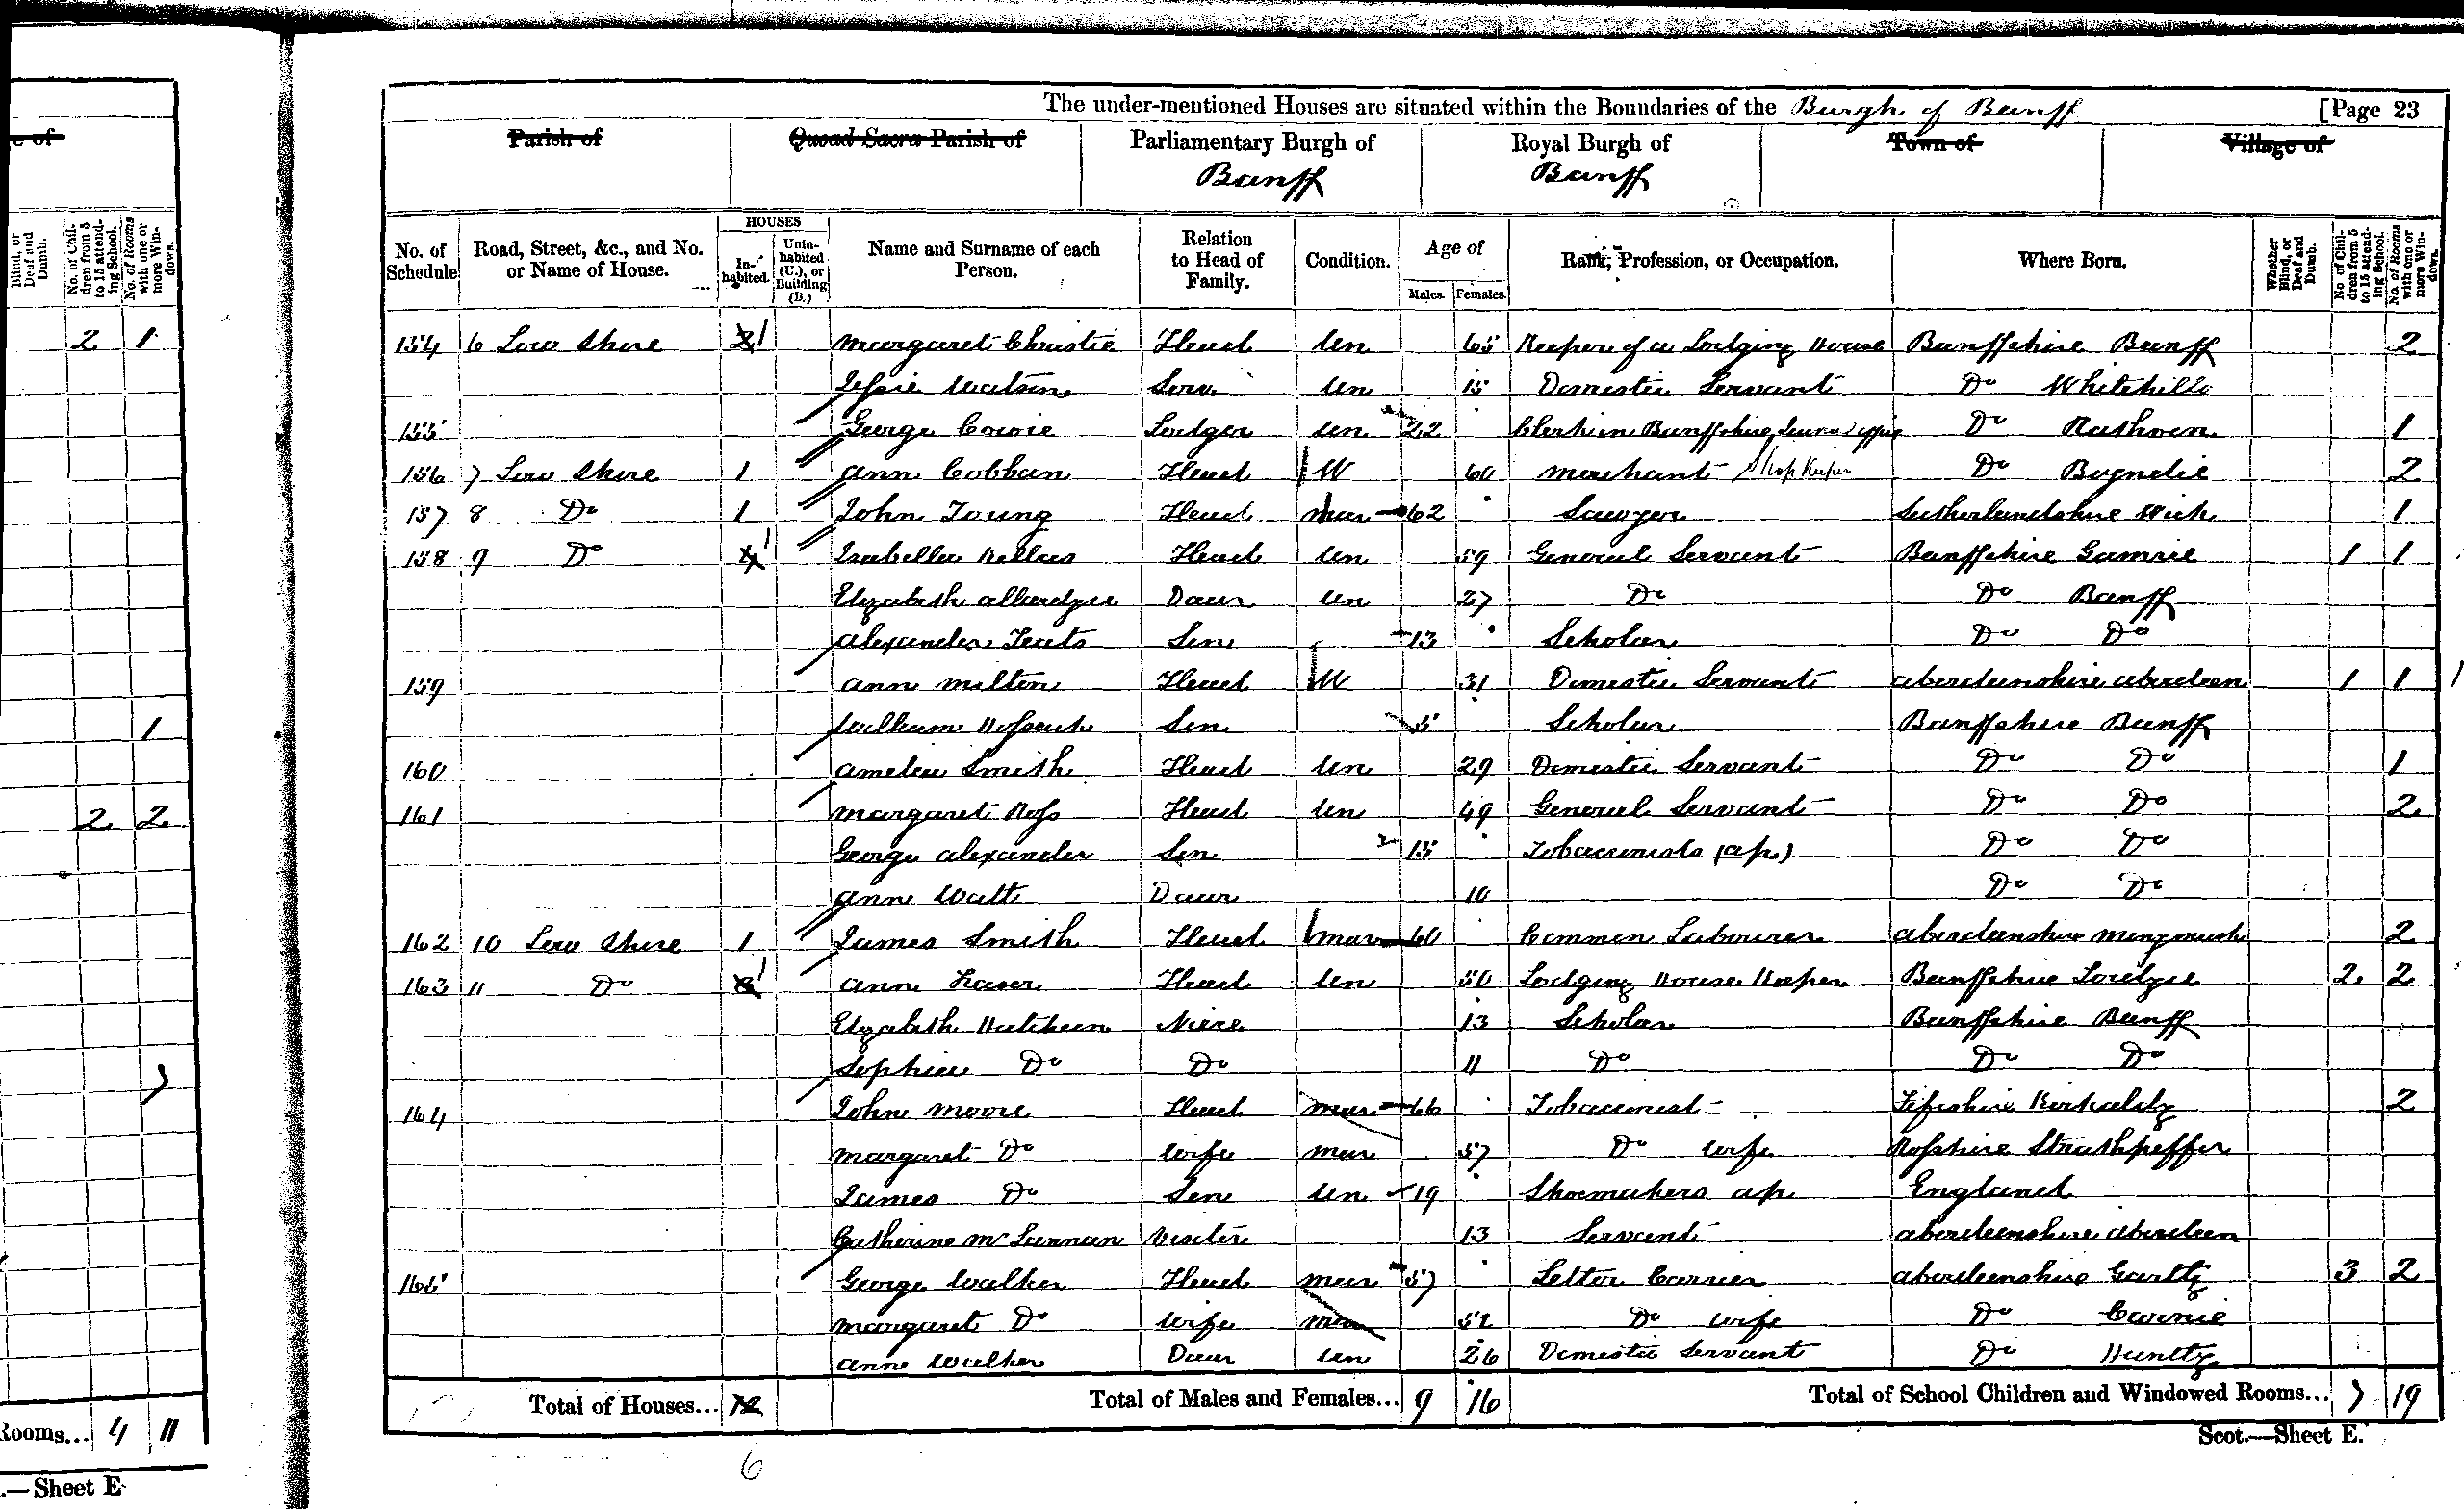 The under-mentioned Houses are situated within the Boundaries of the Burgh of Banff [Page 23
Parish of Quoad Sacra Parish of Parliamentary Burgh of Royal Burgh of Town of Village of
Banff Banff
No. of Schedule Road, Street, &c., and No. or Name of House. HOUSES In-habited. Unin-habited (U.), or Building (B.) Name and Surname of each Person. Relation to Head of Family. Condition. Age of Males. Females. Rank, Profession, or Occupation. Where Born. Whether Blind, or Deaf and Dumb. No. of Chil-dren from 5 to 15 attend-ing School. No. of Rooms with one or more Win-dows.
154 6 Low Shore 1 Margaret Christie Head Un 65 Keeper of a Lodging House Banffshire Banff 2
Jessie Watson Serv. Un 15 Domestic Servant Do Whitehills
155 George Cowie Lodger Un 22 Clerk in Banffshire Do Rathven 1
156 7 Low Shore 1 Ann Cobban Head W 60 Merchant Shop Keeper Do Boyndie 2
157 8 Do 1 John Young Head Mar 62 Sawyer Sutherlandshire Wick 1
158 9 Do 1 Isabella Kellas Head Un 59 General Servant Banffshire Gamrie 1 1
Elizabeth Allardyce Daur Un 27 Do Do Banff
Alexander Teats Son 13 Scholar Do Do
159 Ann Milton Head W 31 Domestic Servant Aberdeenshire Aberdeen 1 1
William Son 5 Scholar Banffshire Banff
160 Amelia Smith Head Un 29 Domestic Servant Do Do 1
161 Margaret Ross Head Un 49 General Servant Do Do 2
George Alexander Son 15 Tobacconists (ap.) Do Do
Ann Watt Daur 10 Do Do
162 10 Low Shore 1 James Smith Head Mar 60 Common Labourer Aberdeenshire 2
163 11 Do 1 Ann Fraser Head Un 50 Lodging House Keeper Banffshire Fordyce 2 2
Elizabeth Hutcheon Niece 13 Scholar Banffshire Banff
Sophia Do Do 11 Do Do Do
164 John Moore Head Mar 66 Tobacconist Fifeshire Kirkaldy 2
Margaret Do Wife Mar 57 Do Wife Rosshire Strathpeffer
James Do Son Un 19 Shoemakers ap. England
Catherine McLennan Visitor 13 Servant Aberdeenshire Aberdeen
165 George Walker Head Mar 57 Letter Carrier Aberdeenshire Gartly 3 2
Margaret Do Wife Mar 52 Do Wife Do Cairnie
Ann Walker Daur Un 26 Domestic Servant Do Huntly
Total of Houses... 12 Total of Males and Females... 9 16 Total of School Children and Windowed Rooms... 7 19
Scot.—Sheet E.
6
e of
Blind, or Deaf and Dumb. No. of Chil-dren from 5 to 15 attend-ing School. No. of Rooms with one or more Win-dows.
2 1
1
2 2
7
Rooms... 4 11
.—Sheet E